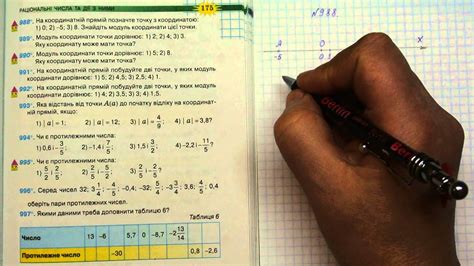 РАЦІОНАЛЬНІ ЧИСЛА ТА ДІЇ З НИМИ 175
988°. На координатній прямій позначте точку з координатою:
1) 0; 2) -5; 3) 8. Знайдіть модуль координати цієї точки.
989°. Модуль координати точки дорівнює: 1) 3; 2) 4.
Яку координату може мати точка?
990°. Модуль координати точки дорівнює: 1) 5; 2) 8.
Яку координату може мати точка?
991°. На координатній прямій побудуйте дві точки, у яких модуль
координати дорівнює: 1) 5; 2) 4,5; 3) 2,5; 4) 1.
992°. На координатній прямій побудуйте дві точки, у яких модуль
координати дорівнює: 1) 4; 2) 3,5.
993°. Яка відстань від точки A(a) до початку відліку на координат-
ній прямій, якщо:
1) |a| = 1; 2) |a| = 12; 3) |a| = 4/9; 4) |a| = 3,8?
994°. Чи є протилежними числа:
1) 0,6 і -3/5; 2) -1,4 і 7/5; 3) 1,5 і 3/2; 4) -2,2 і 11/5?
995°. Чи є протилежними числа:
1) 5/2 і 2/5; 2) 5/2 і -2/5; 3) -5/2 і -2/5?
996°. Серед чисел 32; 3 1/4; -4/5; -0,4; -32; 5/4; -3 3/4; 3,6; 4/5; 0,4
оберіть пари протилежних чисел.
997°. Якими даними треба доповнити таблицю 6?
Таблиця 6
Число 13 -6 5,7 0 -8,7 -2 13/14
Протилежне число -30 0,8 -2,6
N988.
A 0 x
-5 0 1
Berlin